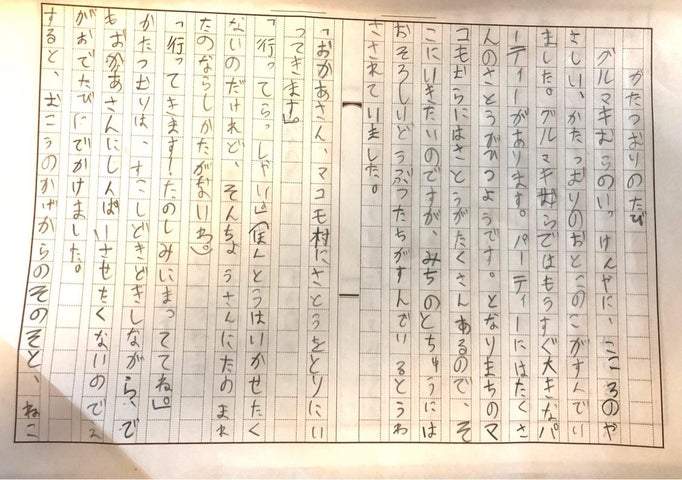 かたつむりのたび
グルマキむらのいっけんやに、こころのや
さしい、かたつむりのおとこのこがすんでい
ました。グルマキむらではもうすぐ大きなパ
ーティーがあります。パーティーにはたくさ
んのさとうがひつようです。となりまちのマ
コモむらにはさとうがたくさんあるので、そ
こにいきたいのですが、みちのとちゅうには
おそろしいどうぶつたちがすんでいるとうわ
さされていました。
「おかあさん、マコモ村にさとうをとりにい
ってきます」。
「行ってらっしゃい。」(ほんとうはいかせたく
ないのだけれど、そんちょうさんにたのまれ
たのならしかたがないわ。)
「行ってきます!たのしみにまっててね。」
かたつむりは、すこしどきどきしながら、で
もおかあさんにしんぱいさせたくないのでえ
がおでたびにでかけました。
すると、むこうのかげからのそのそと、ねこ